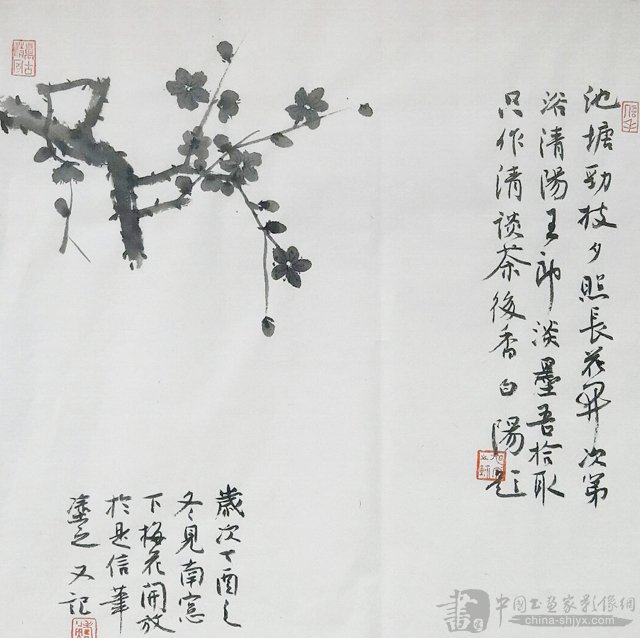 池塘勁枝夕照長花開次第
浴清陽王郎淡墨吾拾取
只作清談茶後香白陽題
歲次丁酉之
冬見南窓
下梅花開放
於是信筆
塗之又記
書
中国书画家影像網
china-shjyx.com